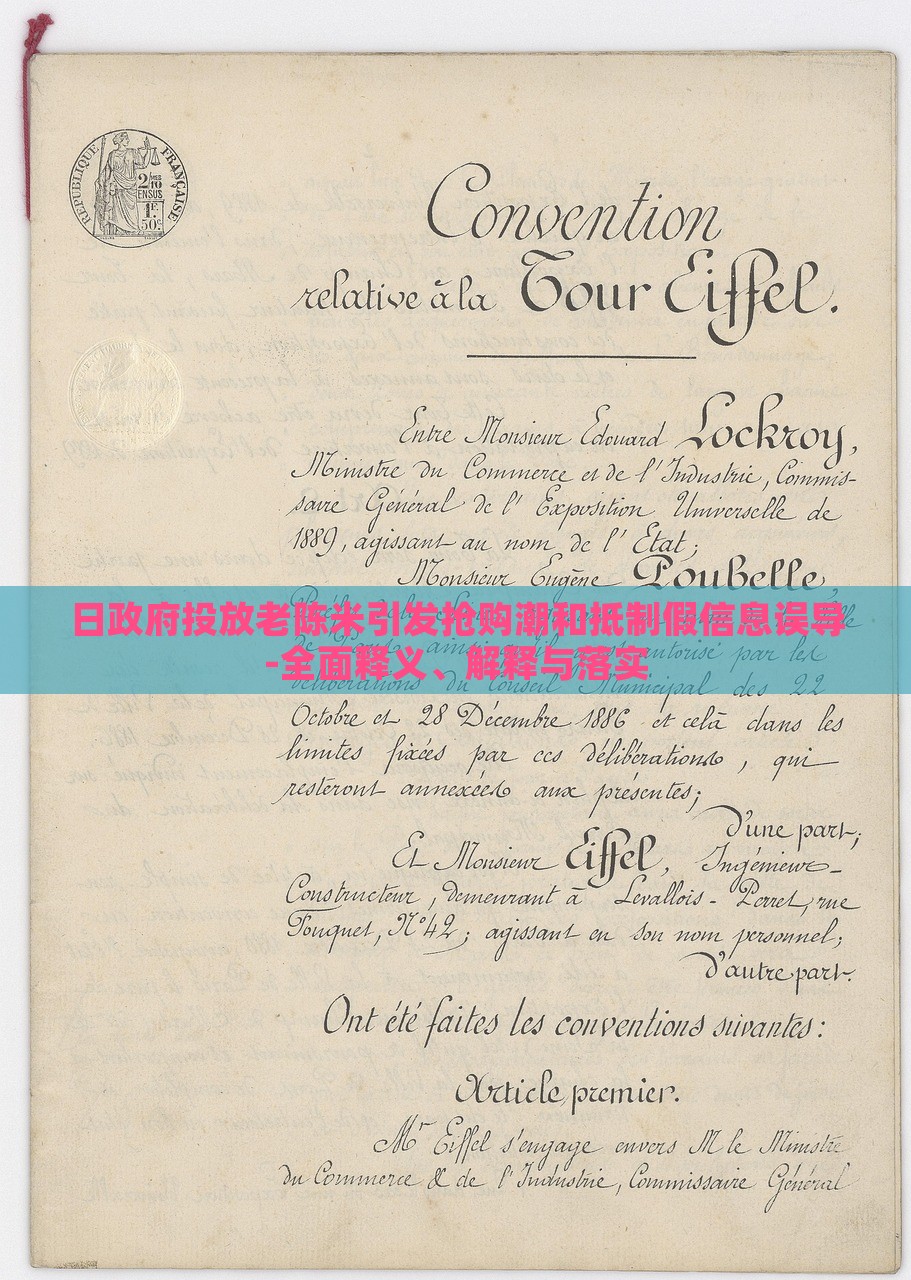 RÉPUBLIQUE FRANÇAISE
2/10
EN SUS
1F.
50c
Convention
relative à la Tour Eiffel.
Entre Monsieur Edouard Lockroy,
Ministre du Commerce et de l'Industrie, Commis-
saire Général de l'Exposition Universelle de
1889, agissant au nom de l'Etat;
Monsieur Eugène Poubelle,
日政府投放老陈米引发抢购潮和抵制假信息误导
de Paris autorisé par les
-全面释义、解释与落实
délibérations du Conseil Municipal des 22
Octobre et 28 Décembre 1886 et celà dans les
limites fixées par ces délibérations, qui
resteront annexées aux présentes;
D'une part;
Et Monsieur Eiffel, Ingénieur-
Constructeur, demeurant à Levallois-Perret, rue
Fouquet, N°42; agissant en son nom personnel;
D'autre part.
Ont été faites les conventions suivantes:
Article premier.
Mr Eiffel s'engage envers M le Ministre
du Commerce & de l'Industrie, Commissaire Général